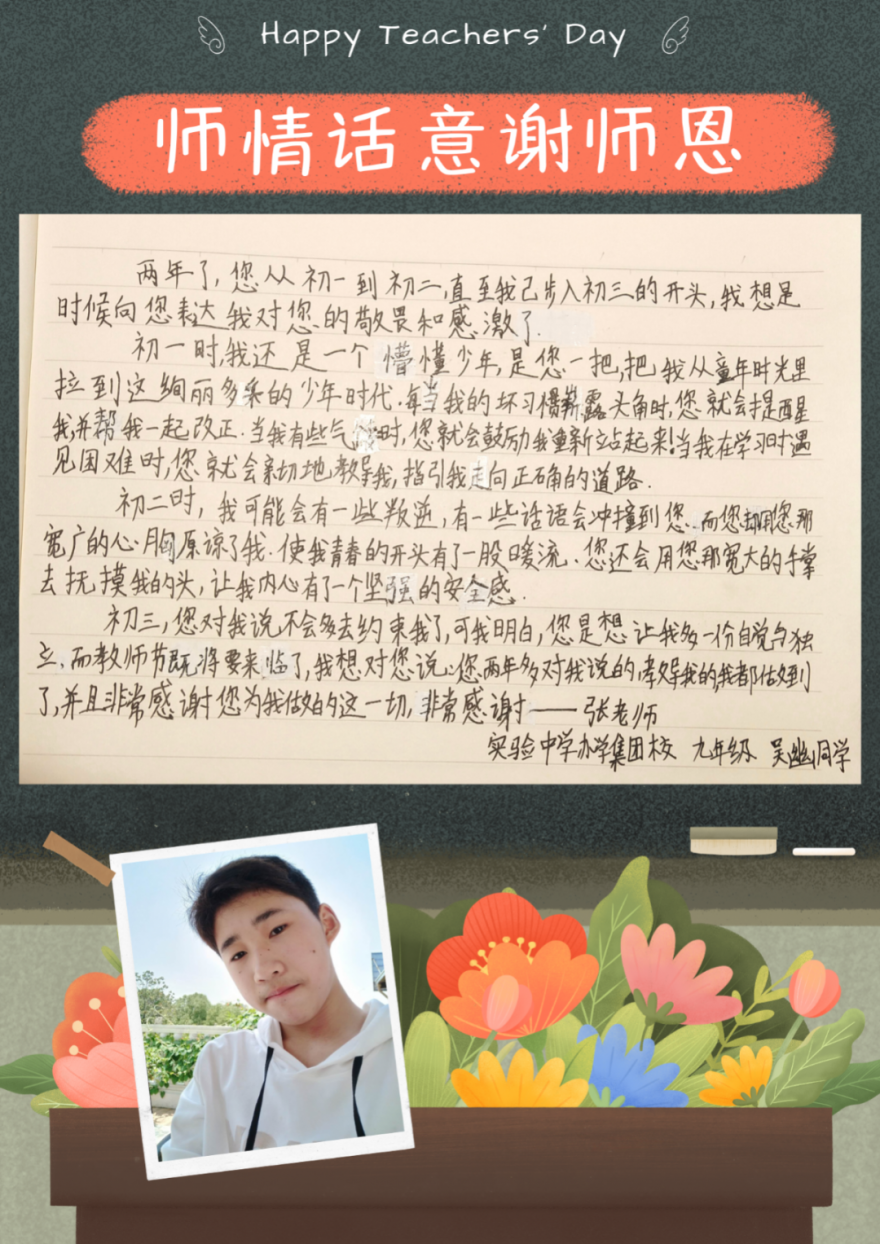 Happy Teachers' Day
师情话意谢师恩
两年了，您从初一到初二，直至我已步入初三的开头，我想是
时候向您表达我对您的敬畏和感激了.
初一时，我还是一个懵懂少年，是您一把，把我从童年时光里
拉到这绚丽多采的少年时代.每当我的坏习惯崭露头角时，您就会提醒
我，并帮我一起改正.当我有些气馁时，您就会鼓励我重新站起来！当我在学习时遇
见困难时，您就会亲切地教导我，指引我走向正确的道路.
初二时，我可能会有一些叛逆，有一些话语会冲撞到您.而您却用您那
宽广的心胸原谅了我.使我青春的开头有了一股暖流.您还会用您那宽大的手掌
去抚摸我的头，让我内心有了一个坚强的安全感.
初三，您对我说不会多去约束我了，可我明白，您是想让我多一份自觉与独
立.而教师节既将要来临了，我想对您说：您两年多对我说的，教导我的，我都做到
了，并且非常感谢您为我做的这一切，非常感谢——张老师
实验中学办学集团本校 九年级 吴幽同学